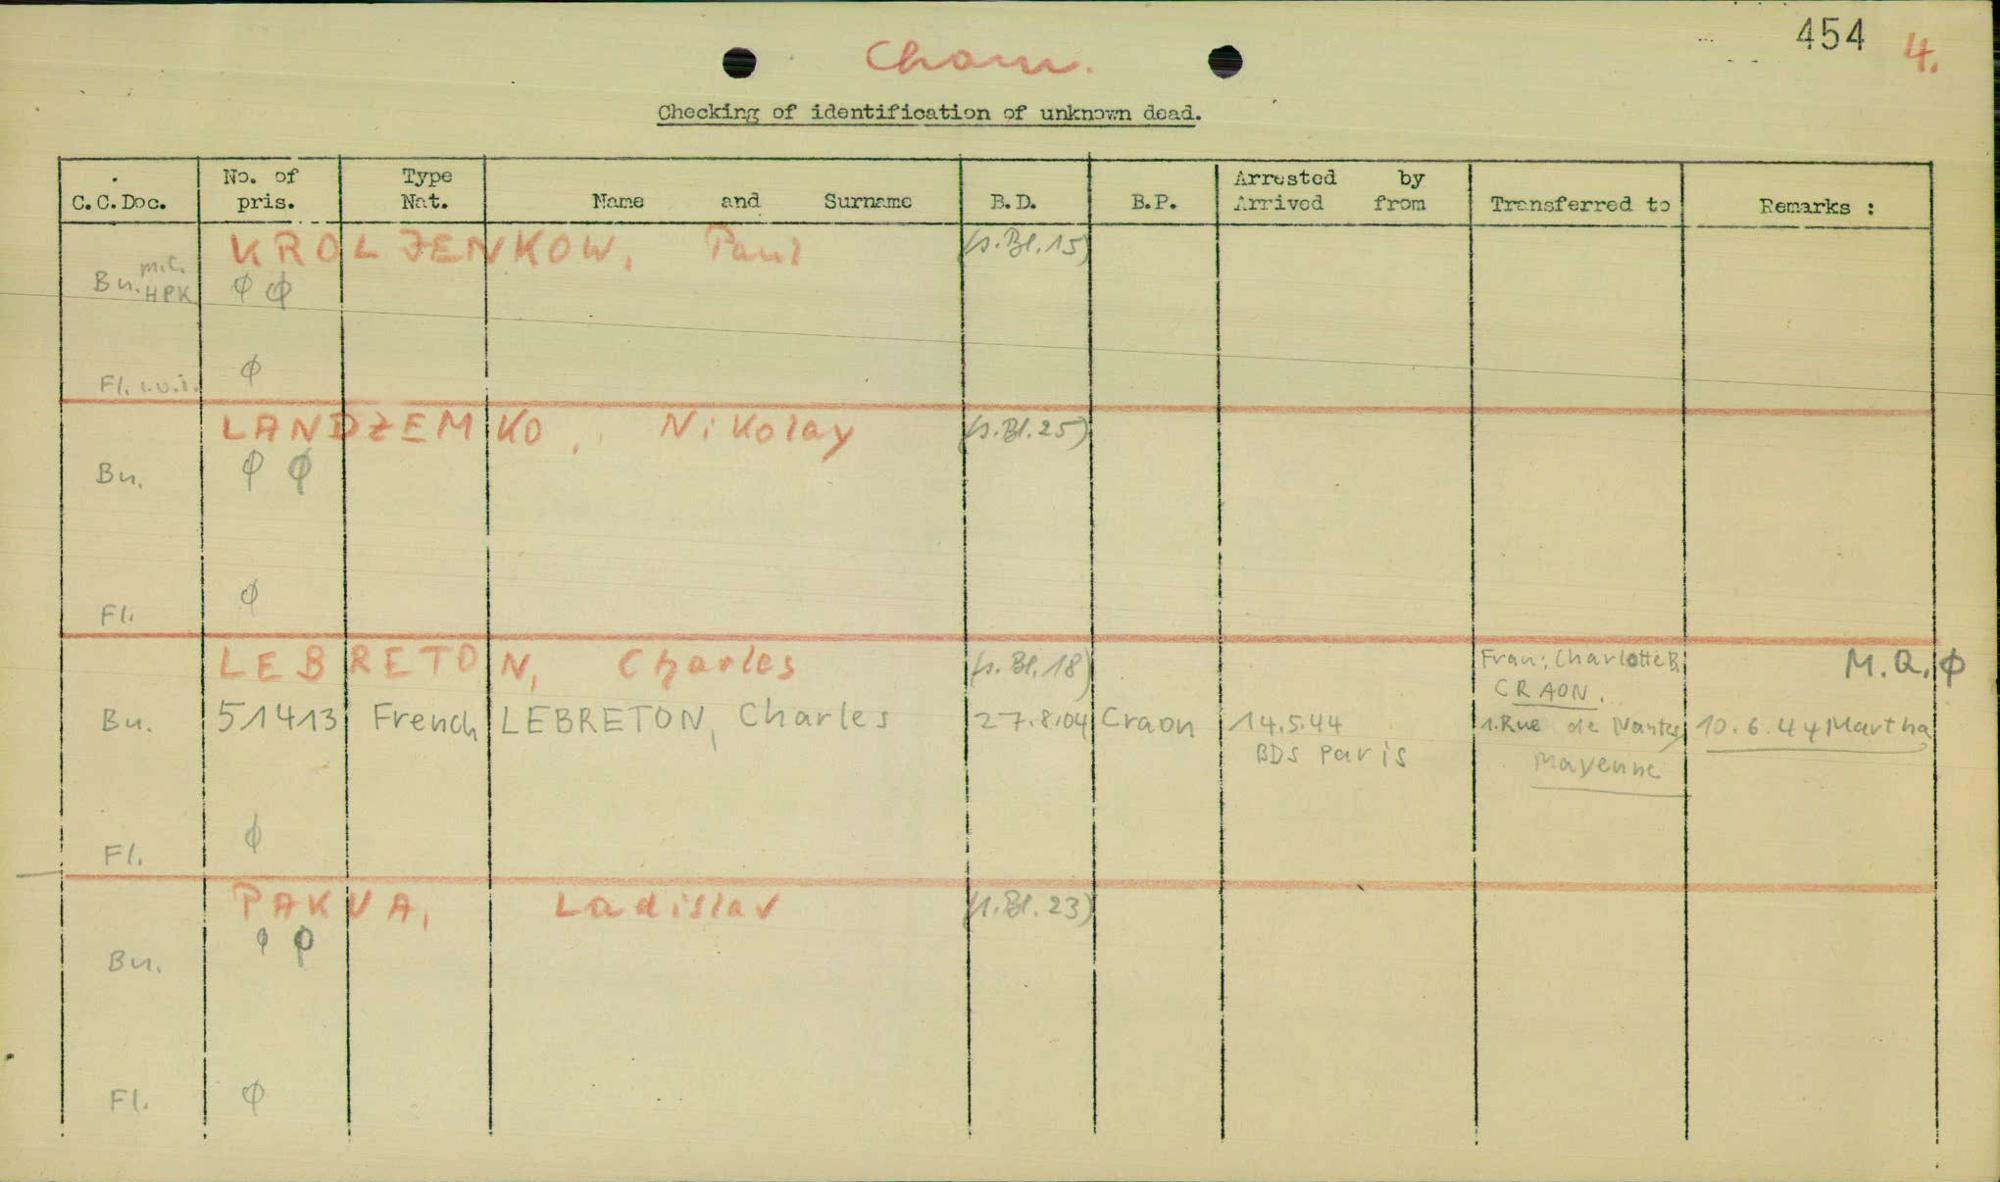 454 4.
Cham.
Checking of identification of unknown dead.
C.C.Doc. No. of pris. Type Nat. Name and Surname B.D. B.P. Arrested by Arrived from Transferred to Remarks :
KROLJENKOW, Paul (s.Bl.15)
Bu. m.C. HPK φ φ
Fl. φ
LANDZEMKO, Nikolay (s.Bl.25)
Bu. φ φ
Fl. φ
LEBRETON, Charles (s.Bl.18) Frau: Charlotte B. M.Q. φ
CRAON.
Bu. 51413 French LEBRETON, Charles 27.8.04 Craon 14.5.44 1.Rue de Nantes 10.6.44 Martha
BDS Paris Mayenne
Fl. φ
PAKVA, Ladislav (s.Bl.23)
Bu. φ φ
Fl. φ